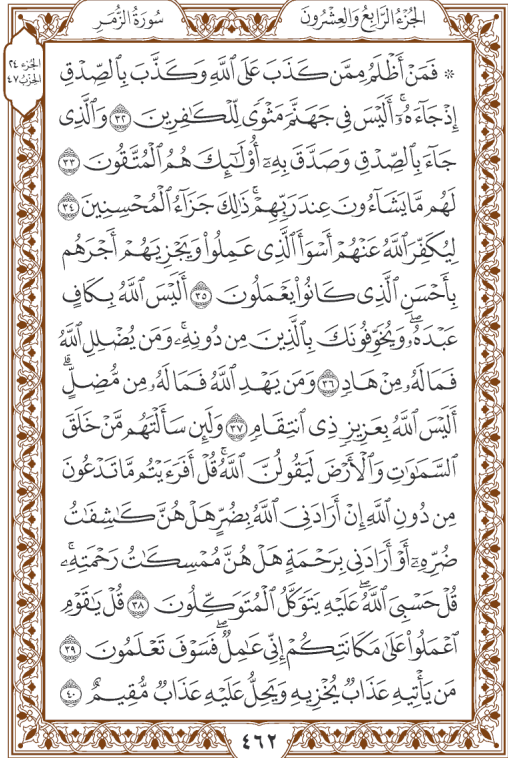 الجُزْءُ الرَّابِعُ وَالعِشْرُونَ
سُورَةُ الزُّمَر
الجزء ٢٤
الحِزب ٤٧
۞ فَمَنْ أَظْلَمُ مِمَّن كَذَبَ عَلَى ٱللَّهِ وَكَذَّبَ بِٱلصِّدْقِ
إِذْ جَآءَهُۥٓۚ أَلَيْسَ فِى جَهَنَّمَ مَثْوًى لِّلْكَـٰفِرِينَ ٣٢ وَٱلَّذِى
جَآءَ بِٱلصِّدْقِ وَصَدَّقَ بِهِۦٓ أُو۟لَـٰٓئِكَ هُمُ ٱلْمُتَّقُونَ ٣٣
لَهُم مَّا يَشَآءُونَ عِندَ رَبِّهِمْۚ ذَٰلِكَ جَزَآءُ ٱلْمُحْسِنِينَ ٣٤
لِيُكَفِّرَ ٱللَّهُ عَنْهُمْ أَسْوَأَ ٱلَّذِى عَمِلُوا۟ وَيَجْزِيَهُمْ أَجْرَهُم
بِأَحْسَنِ ٱلَّذِى كَانُوا۟ يَعْمَلُونَ ٣٥ أَلَيْسَ ٱللَّهُ بِكَافٍ
عَبْدَهُۥۖ وَيُخَوِّفُونَكَ بِٱلَّذِينَ مِن دُونِهِۦۚ وَمَن يُضْلِلِ ٱللَّهُ
فَمَا لَهُۥ مِنْ هَادٍ ٣٦ وَمَن يَهْدِ ٱللَّهُ فَمَا لَهُۥ مِن مُّضِلٍّۗ
أَلَيْسَ ٱللَّهُ بِعَزِيزٍ ذِى ٱنتِقَامٍ ٣٧ وَلَئِن سَأَلْتَهُم مَّنْ خَلَقَ
ٱلسَّمَـٰوَٰتِ وَٱلْأَرْضَ لَيَقُولُنَّ ٱللَّهُۚ قُلْ أَفَرَءَيْتُم مَّا تَدْعُونَ
مِن دُونِ ٱللَّهِ إِنْ أَرَادَنِىَ ٱللَّهُ بِضُرٍّ هَلْ هُنَّ كَـٰشِفَـٰتُ
ضُرِّهِۦٓ أَوْ أَرَادَنِى بِرَحْمَةٍ هَلْ هُنَّ مُمْسِكَـٰتُ رَحْمَتِهِۦۚ
قُلْ حَسْبِىَ ٱللَّهُۖ عَلَيْهِ يَتَوَكَّلُ ٱلْمُتَوَكِّلُونَ ٣٨ قُلْ يَـٰقَوْمِ
ٱعْمَلُوا۟ عَلَىٰ مَكَانَتِكُمْ إِنِّى عَـٰمِلٌۖ فَسَوْفَ تَعْلَمُونَ ٣٩
مَن يَأْتِيهِ عَذَابٌ يُخْزِيهِ وَيَحِلُّ عَلَيْهِ عَذَابٌ مُّقِيمٌ ٤٠
٤٦٢